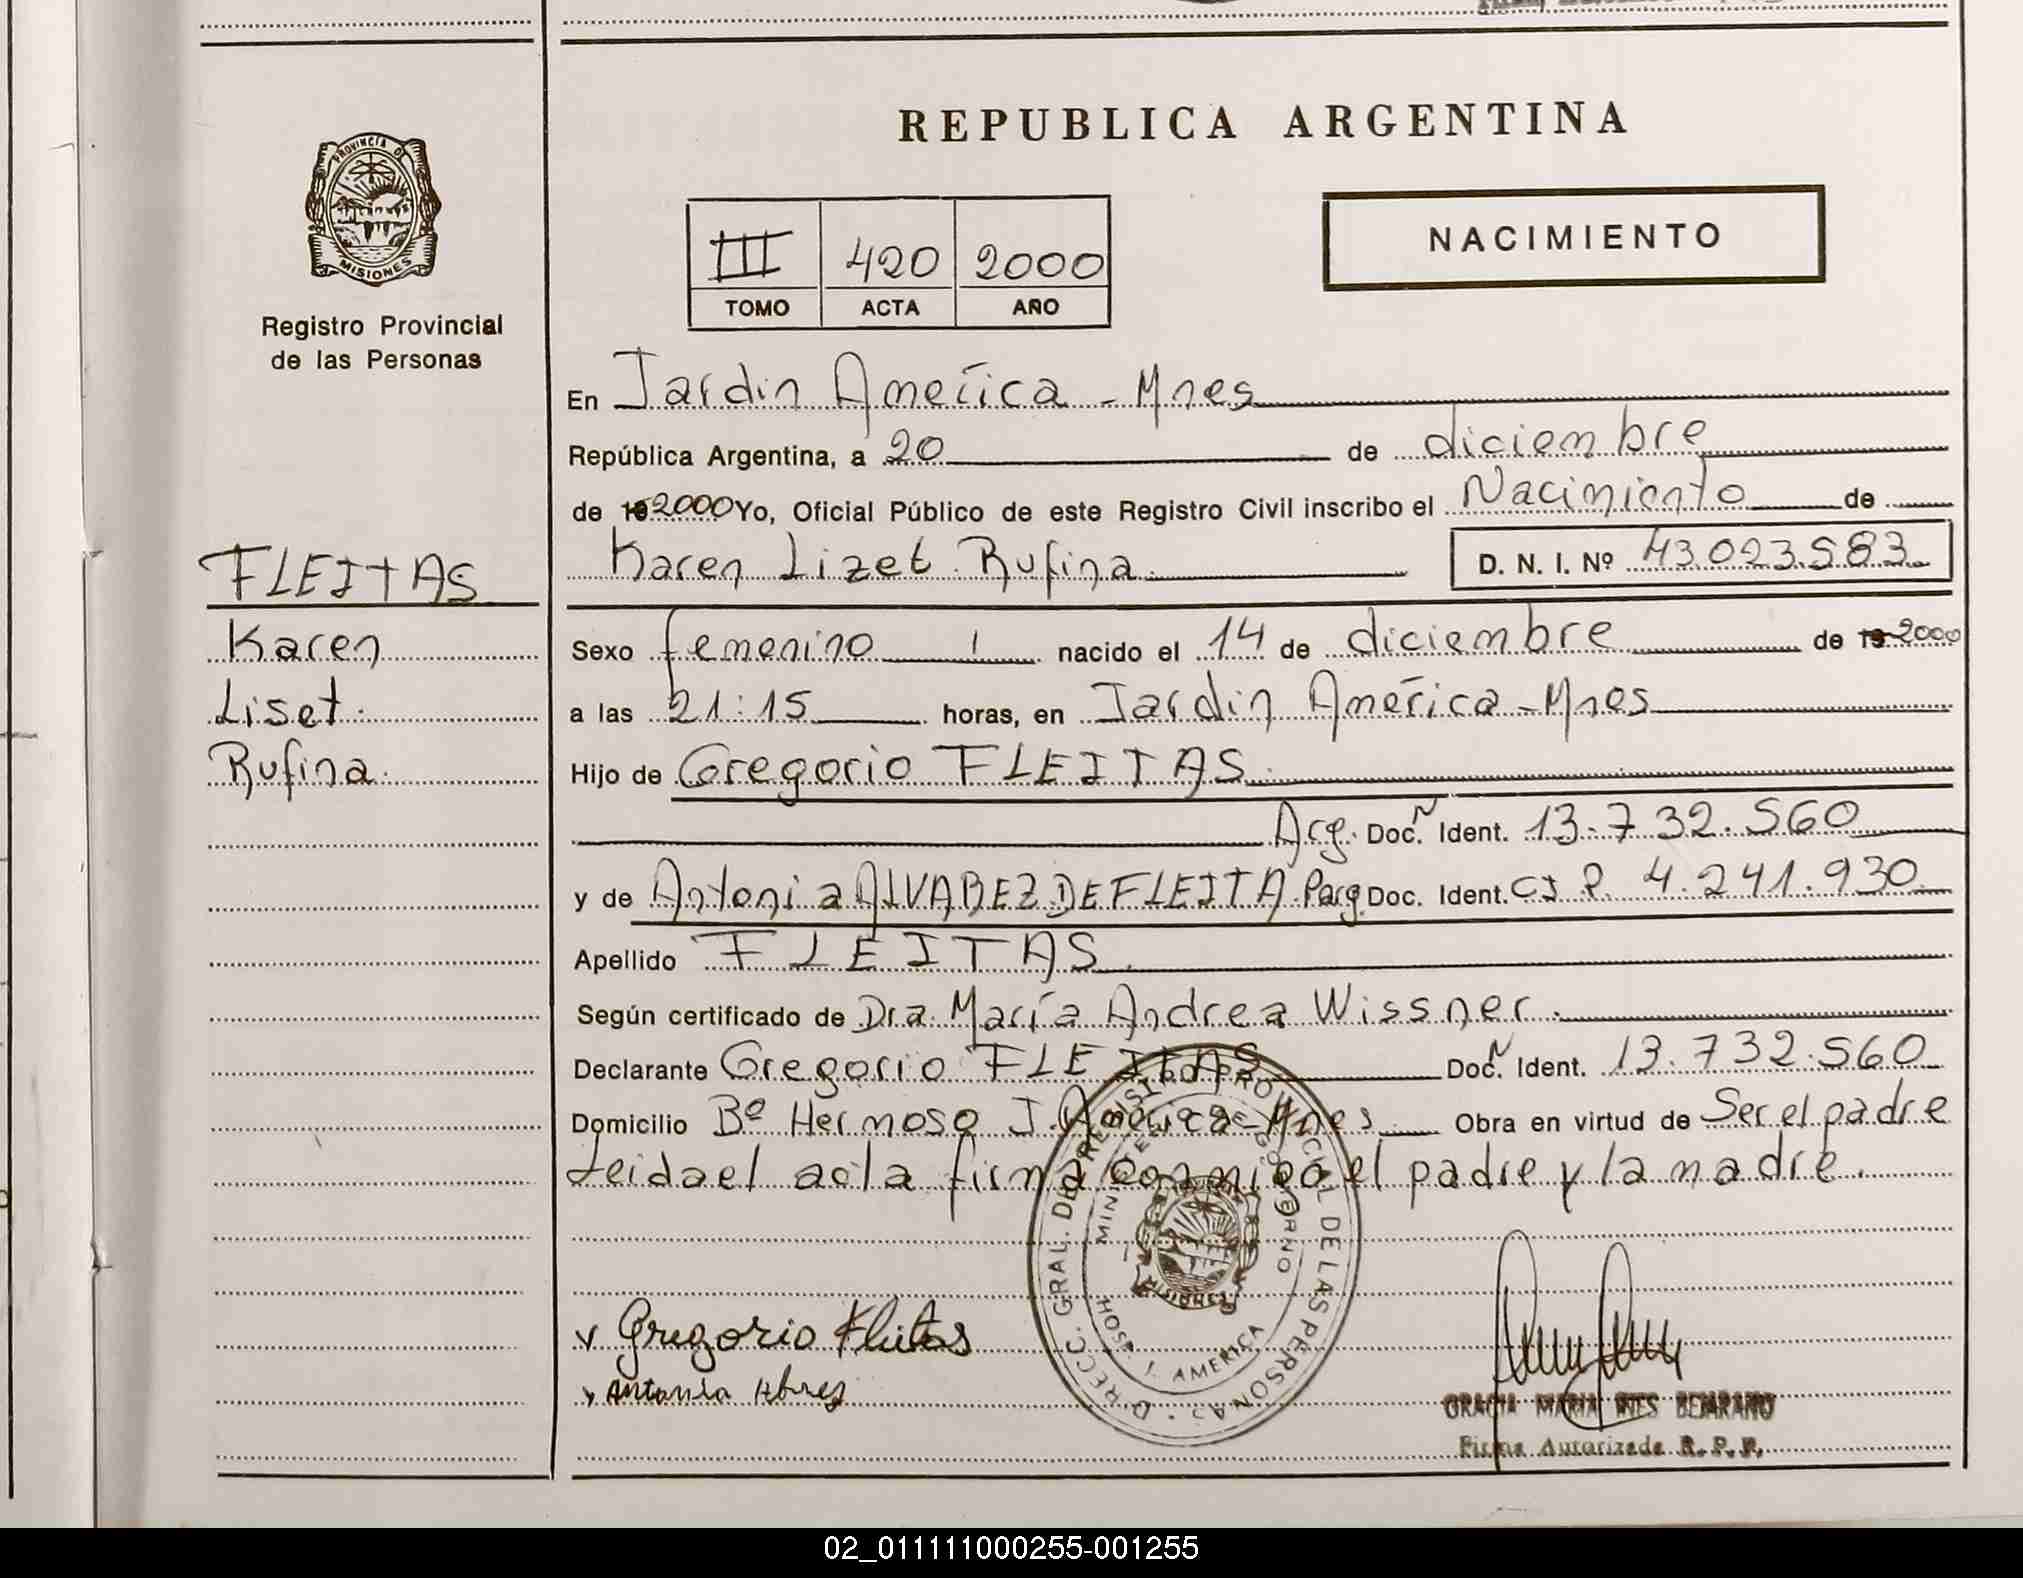 REPUBLICA ARGENTINA
PROVINCIA DE
MISIONES
Registro Provincial
de las Personas
III 420 2000
TOMO ACTA AÑO
NACIMIENTO
En Jardin América - Mnes
República Argentina, a 20 de diciembre
de 19 2000 Yo, Oficial Público de este Registro Civil inscribo el Nacimiento de
Karen Lizet Rufina D. N. I. Nº 43.023.583
FLEITAS
Karen
Liset
Rufina
Sexo femenino nacido el 14 de diciembre de 19 2000
a las 21:15 horas, en Jardin América - Mnes
Hijo de Gregorio FLEITAS
Arg. Doc. N Ident. 13.732.560
y de Antonia ALVAREZ DE FLEITA Parg Doc. Ident. CI P. 4.241.930
Apellido FLEITAS
Según certificado de Dra. María Andrea Wissner
Declarante Gregorio FLEITAS Doc. N Ident. 13.732.560
Domicilio Bº Hermoso J. América - Mnes Obra en virtud de Ser el padre
Leida el acta firma conmigo el padre y la madre.
DIRECC. GRAL. DEL REGISTRO PROVINCIAL DE LAS PERSONAS
MINISTERIO DE GOBIERNO
MISIONES
HOSP. J. AMERICA
Gregorio Fleitas
Antonia
GRACIA MARIA INES BEJARANO
Firma Autorizada R. P. P.
02_011111000255-001255